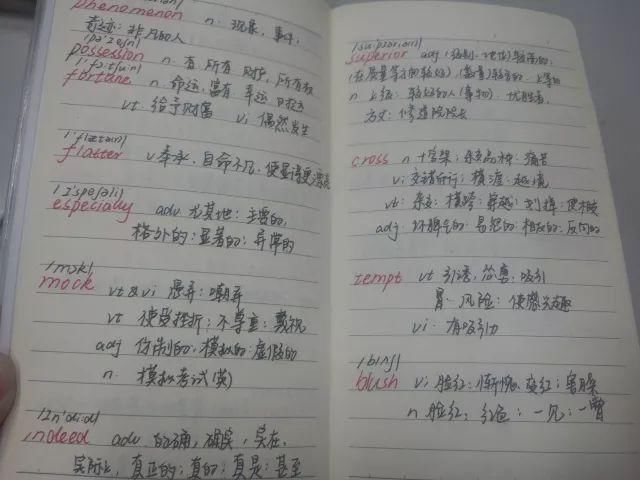 phenomenon n. 现象，事件；
奇迹；非凡的人
possession n. 有，所有 财产，所有权
fortune n. 命运，富有 幸运 财产
vt. 给予财富 vi 偶然发生
flatter v 奉承，自命不凡，使显得更漂亮
especially adv 尤其地；主要的，
格外的；显著的；异常的
mock vt & vi 愚弄；嘲弄
vt 使受挫折；不尊重；蔑视
adj 仿制的；模拟的；虚假的
n. 模拟考试(英)
indeed adv 的确，确实，实在，
实际上，真正的；真的；真是；甚至
superior adj (级别、地位)较高的；
(在质量等方面较好)(数量)较多的 上等的
n 上级；较好的人(事物)，优胜者，
方丈；修道院院长
cross n 十字架；杂交品种；痛苦
vi 交错而行；横渡；越境
vt 杂交；横跨；穿越；划掉；使相交
adj 坏脾气的；易怒的；相反的；反向的
tempt vt 引诱，怂恿，吸引
冒…风险；使感兴趣
vi. 有吸引力
/blʌʃ/
blush vi 脸红；惭愧，变红；害臊
n 脸红；红色；一见；一瞥